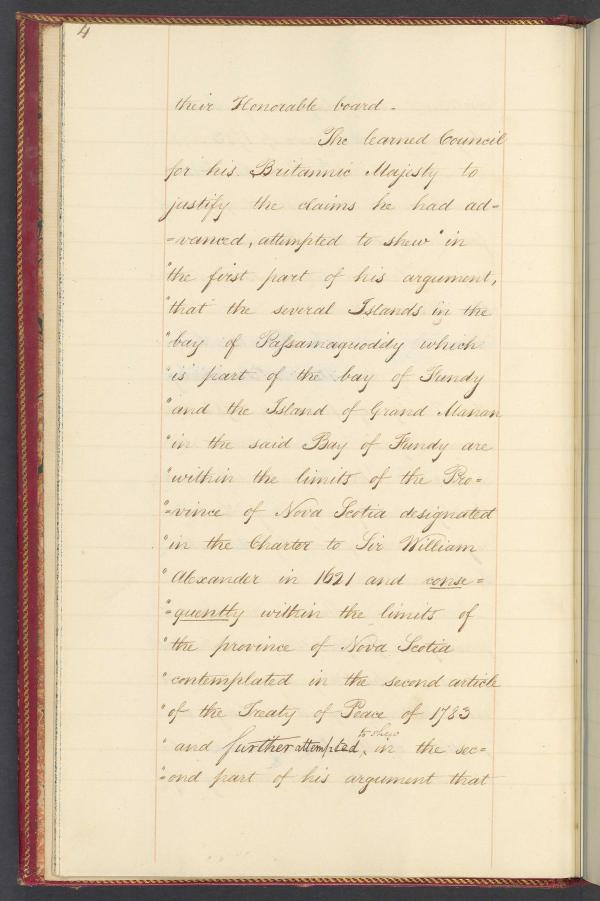 4
their Honorable board -
The learned Council
for his Britannic Majesty to
justify the claims he had ad=
=vanced, attempted to shew "in
"the first part of his argument,
"that the several Islands in the
"bay of Passamaquoddy which
"is part of the bay of Fundy
"and the Island of Grand Manan
"in the said Bay of Fundy are
"within the limits of the Pro=
"=vince of Nova Scotia designated
"in the Charter to Sir William
"Alexander in 1621 and conse=
"=quently within the limits of
"the province of Nova Scotia
"contemplated in the second article
"of the Treaty of Peace of 1783
"and further attempted, to shew in the sec=
"=ond part of his argument that